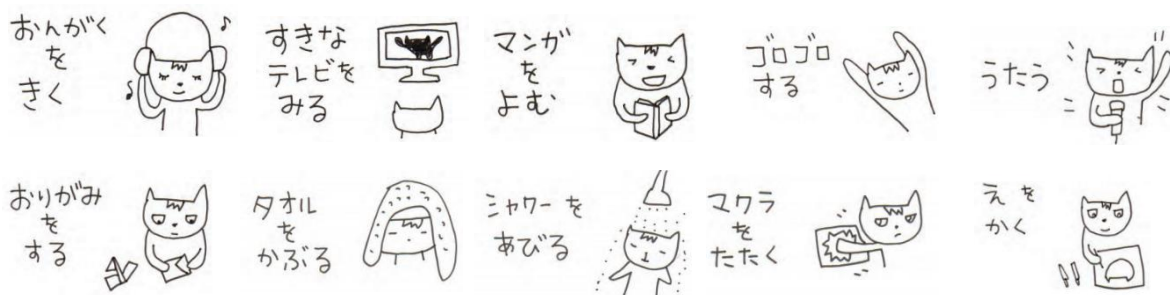 おんがく
を
きく
すきな
テレビを
みる
マンガ
を
よむ
ゴロゴロ
する
うたう
おりがみ
を
する
タオル
を
かぶる
シャワーを
あびる
マクラ
を
たたく
えを
かく